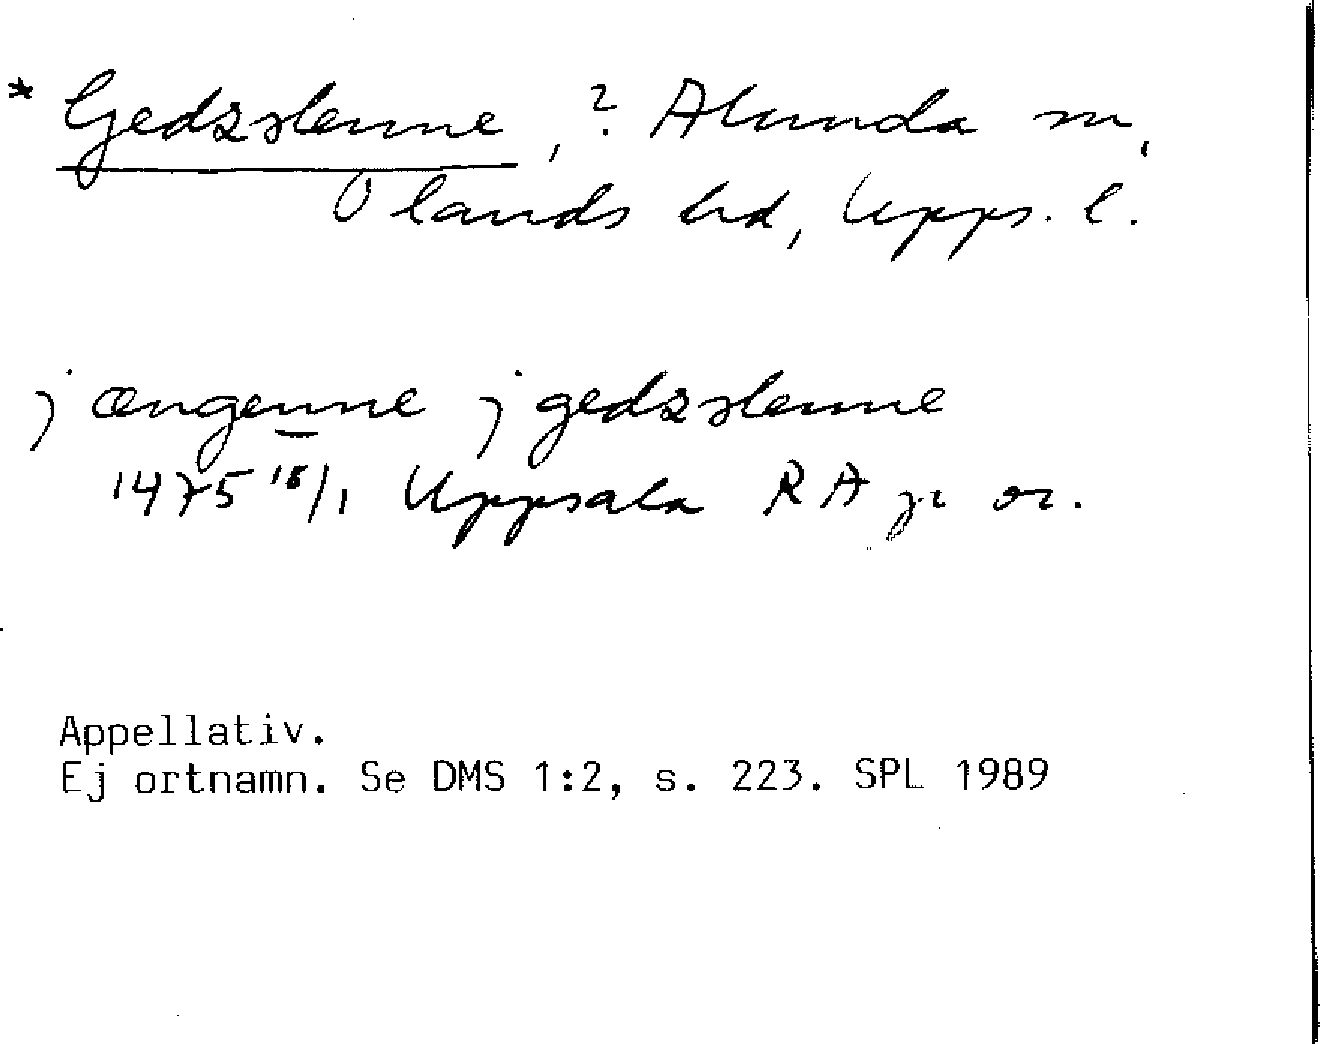 * Gedzslenne, ? Alunda sn,
Olands hd, Upps. l.
j ængenne j gedzslenne
1475 18/1 Uppsala RA pr or.
Appellativ.
Ej ortnamn. Se DMS 1:2, s. 223. SPL 1989